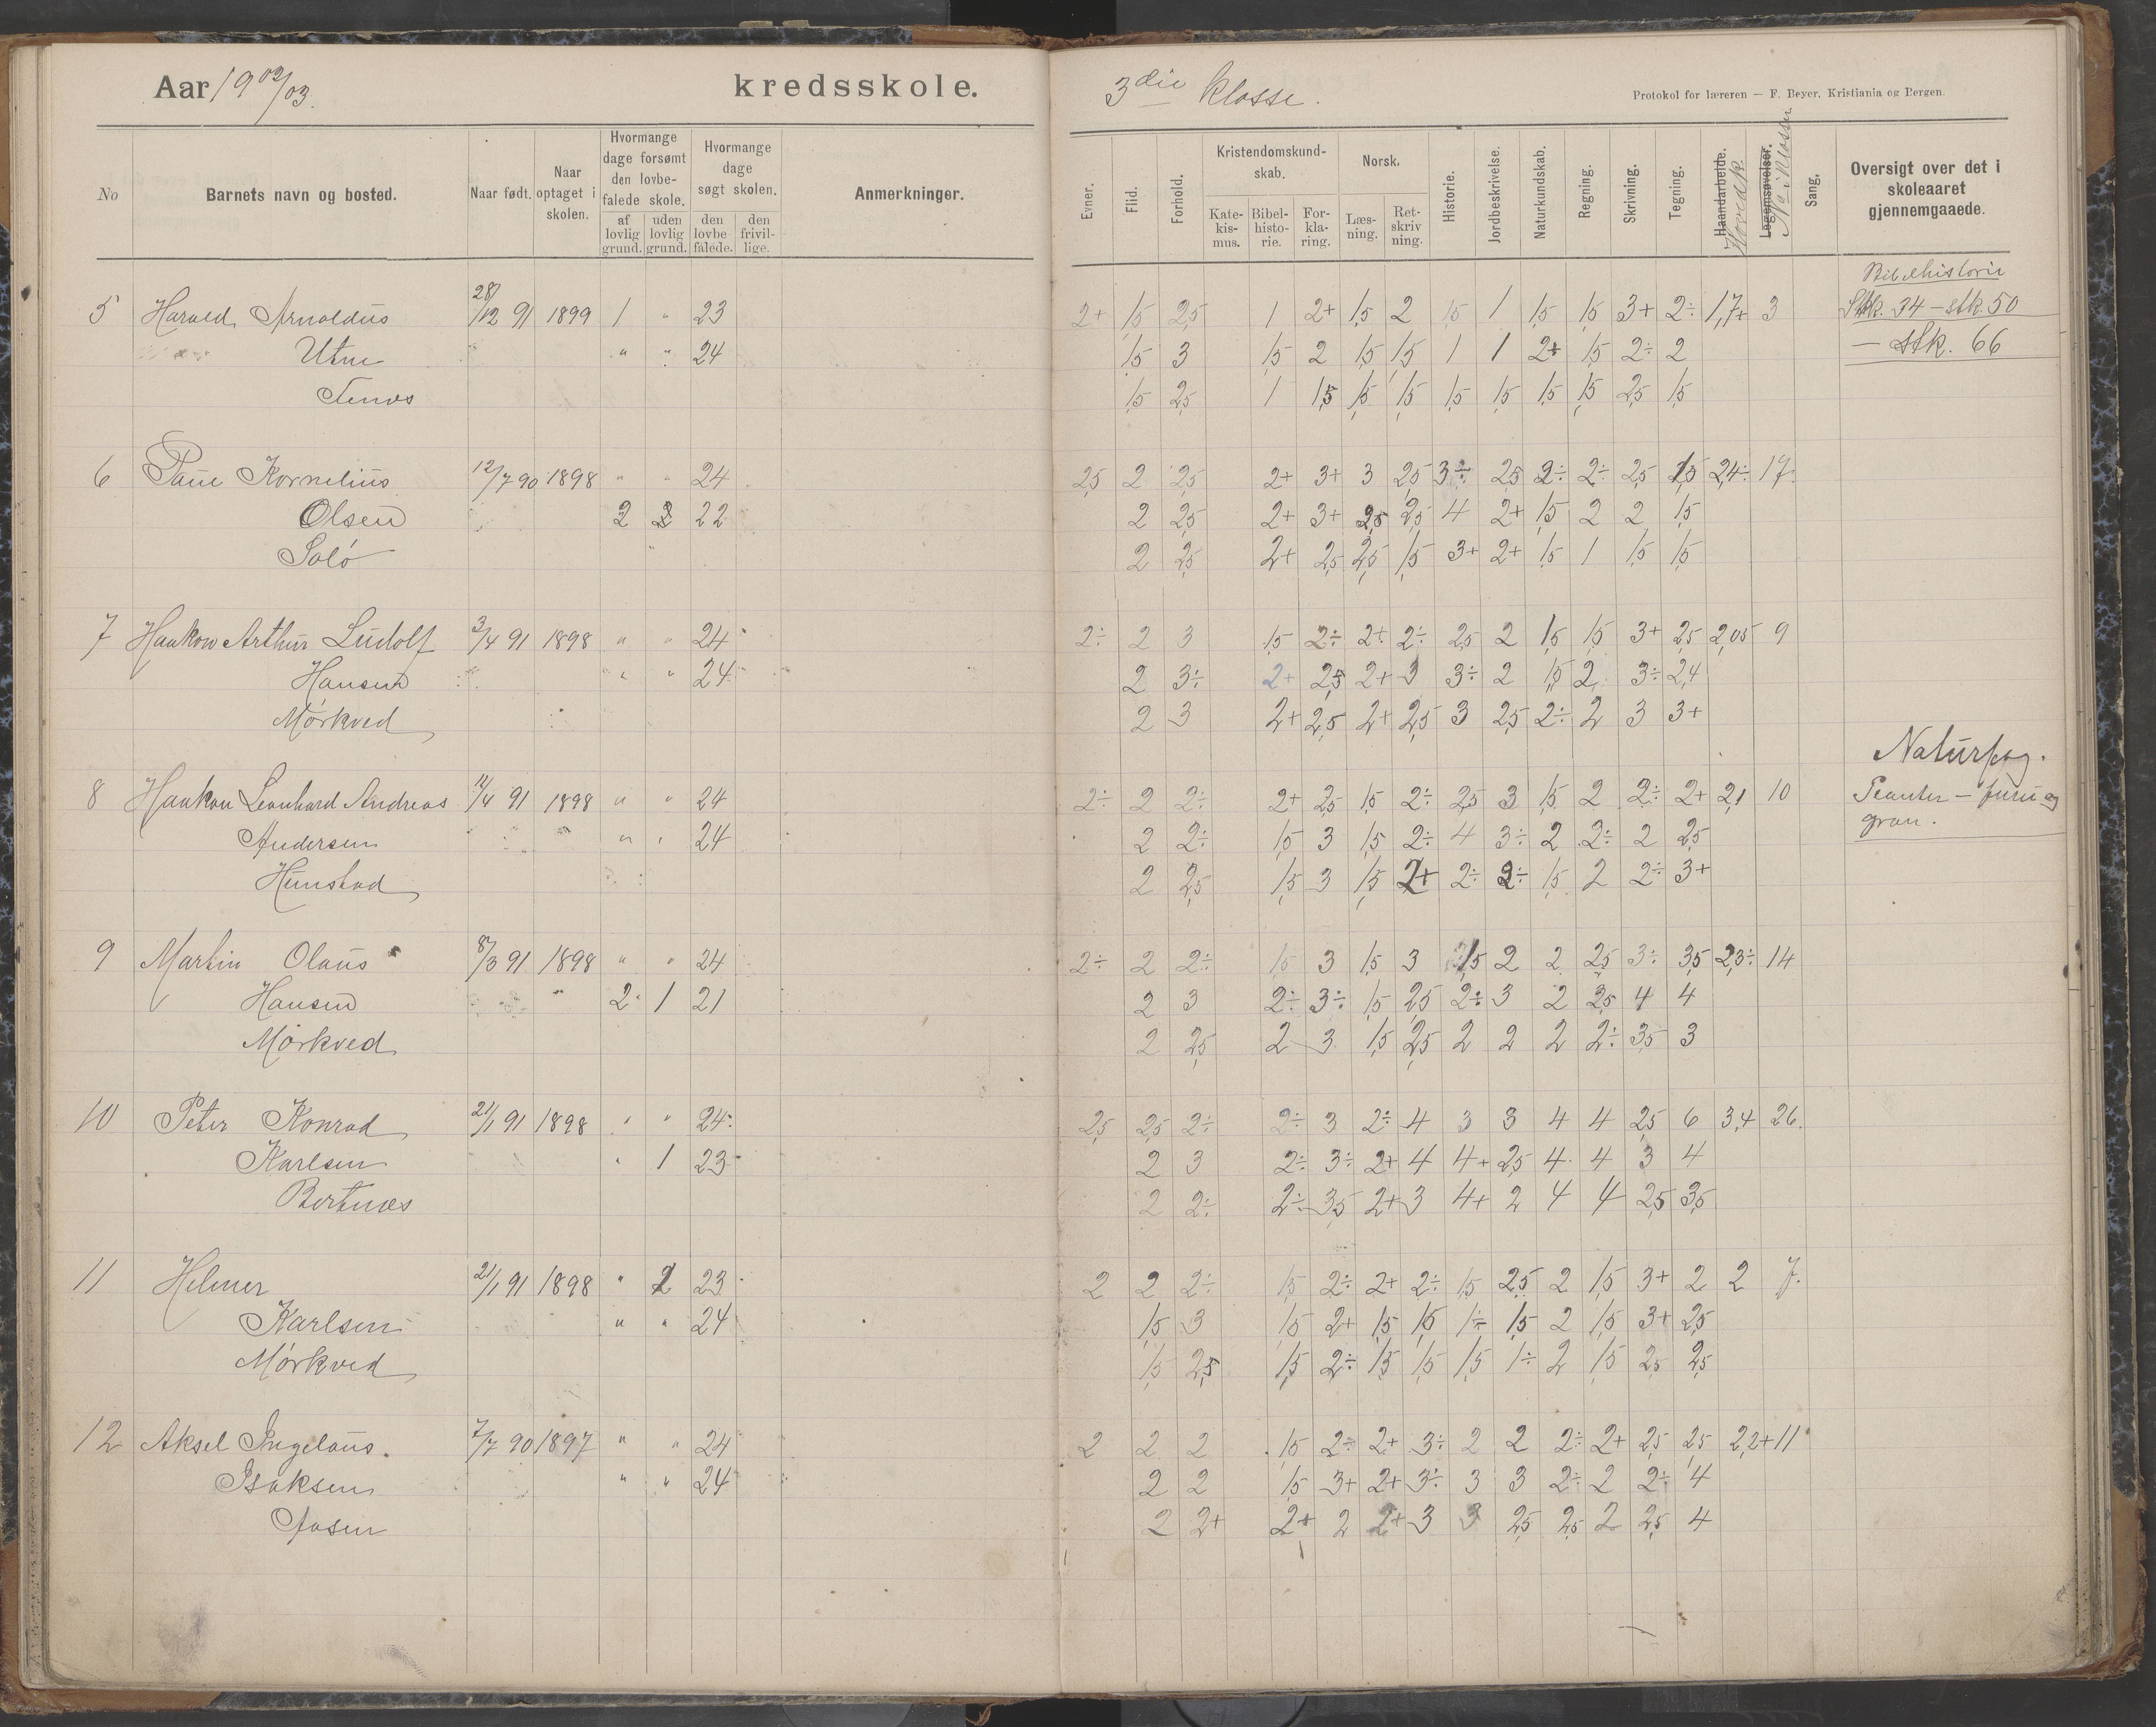 Aar 1902/03.
kredsskole.
3die klasse.
Protokol for læreren — F. Beyer, Kristiania og Bergen.
No
Barnets navn og bosted.
Naar født.
Naar optaget i skolen.
Hvormange dage forsømt den lovbefalede skole.
af lovlig grund.
uden lovlig grund.
Hvormange dage søgt skolen.
den lovbefalede.
den frivillige.
Anmerkninger.
Evner.
Flid.
Forhold.
Kristendomskundskab.
Katekismus.
Bibelhistorie.
Forklaring.
Norsk.
Læsning.
Retskrivning.
Historie.
Jordbeskrivelse.
Naturkundskab.
Regning.
Skrivning.
Tegning.
Haandarbeide.
Hovedk.
Legemsøvelser.
No i klassen
Sang.
Oversigt over det i skoleaaret gjennemgaaede.
Bibelhistorie
5 Harald Arnoldus 28/12 91 1899 1 " 23 2+ 1,5 2,5 1 2+ 1,5 2 1,5 1 1,5 1,5 3+ 2÷ 1,7+ 3 Stk. 34 – stk. 50
Utne " " 24 1,5 3 1,5 2 1,5 1,5 1 1 2+ 1,5 2÷ 2 — stk. 66
1,5 2,5 1 1,5 1,5 1,5 1,5 1,5 1,5 1,5 2,5 1,5
6 Paul Kornelius 12/7 90 1898 " " 24 2,5 2 2,5 2+ 3+ 3 2,5 3÷ 2,5 2÷ 2÷ 2,5 1,5 2,4÷ 17.
Olsen 2 2 22 2 2,5 2+ 3+ 2,5 2,5 4 2+ 1,5 2 2 1,5
Solö 2 2,5 2+ 2,5 2,5 1,5 3+ 2+ 1,5 1 1,5 1,5
7 Haakon Arthur Ludolf 3/4 91 1898 " " 24 2÷ 2 3 1,5 2÷ 2+ 2÷ 2,5 2 1,5 1,5 3+ 2,5 2,05 9
Hansen " " 24 2 3÷ 2+ 2,5 2+ 3 3÷ 2 1,5 2 3÷ 2,4
Mörkved 2 3 2+ 2,5 2+ 2,5 3 2,5 2÷ 2 3 3+
Naturfag.
8 Haakon Leonhard Andreas 12/4 91 1898 " " 24 2÷ 2 2÷ 2+ 2,5 1,5 2÷ 2,5 3 1,5 2 2÷ 2+ 2,1 10 Planter – furu og
Andersen " " 24 2 2÷ 1,5 3 1,5 2÷ 4 3÷ 2 2÷ 2 2,5 gran.
Hunstad 2 2,5 1,5 3 1,5 2+ 2÷ 2÷ 1,5 2 2÷ 3+
9 Martin Olaus 8/3 91 1898 " " 24 2÷ 2 2÷ 1,5 3 1,5 3 1,5 2 2 2,5 3÷ 3,5 2,3÷ 14
Hansen " 2 1 21 2 3 2÷ 3÷ 1,5 2,5 2÷ 3 2 2,5 4 4
Mörkved 2 2,5 2 3 1,5 2,5 2 2 2 2÷ 3,5 3
10 Peter Konrad 21/1 91 1898 " " 24 2,5 2,5 2÷ 2÷ 3 2÷ 4 3 3 4 4 2,5 6 3,4 26.
Karlsen " 1 23 2 3 2÷ 3÷ 2+ 4 4+ 2,5 4 4 3 4
Bertnes 2 2÷ 2÷ 3,5 2+ 3 4+ 2 4 4 2,5 3,5
11 Helmer 21/1 91 1898 " 2 23 2 2 2÷ 1,5 2÷ 2+ 2÷ 1,5 2,5 2 1,5 3+ 2 2 7.
Karlsen " " 24 1,5 3 1,5 2+ 1,5 1,5 1÷ 1,5 2 1,5 3+ 2,5
Mörkved 1,5 2,5 1,5 2÷ 1,5 1,5 1,5 1÷ 2 1,5 2,5 2,5
12 Aksel Ingelaus. 7/7 90 1897 " " 24 2 2 2 1,5 2÷ 2+ 3÷ 2 2 2÷ 2+ 2,5 2,5 2,2+ 11
Isaksen " " 24 2 2 1,5 3+ 2+ 3÷ 3 3 2÷ 2 2÷ 4
2 2+ 2+ 2 2+ 3 3 2,5 2,5 2 2,5 4